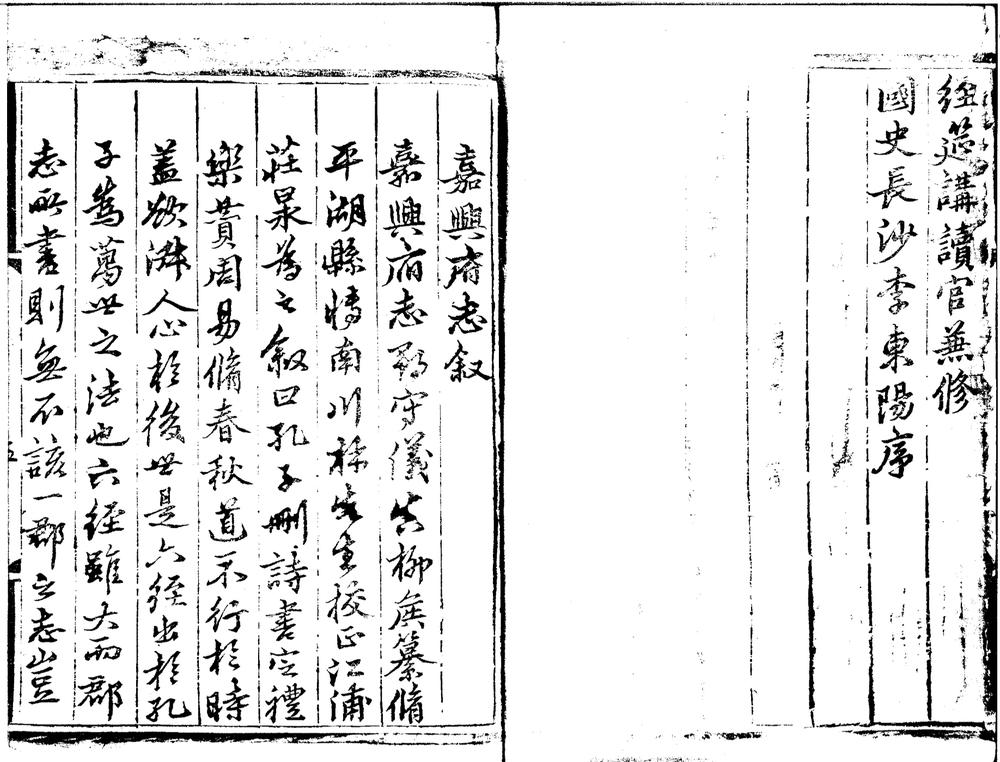 經筵講讀官兼修
國史長沙李東陽序
嘉興府志叙
嘉興府志郡守儀真柳侯纂脩
平湖縣博南川林先生校正江浦
莊杲為之叙曰孔子刪詩書定禮
樂賛周易脩春秋道不行於時
蓋欲淋人心於後世是六經出於孔
子為萬世之法也六經雖大而郡
志所書則無不該一郡之志豈